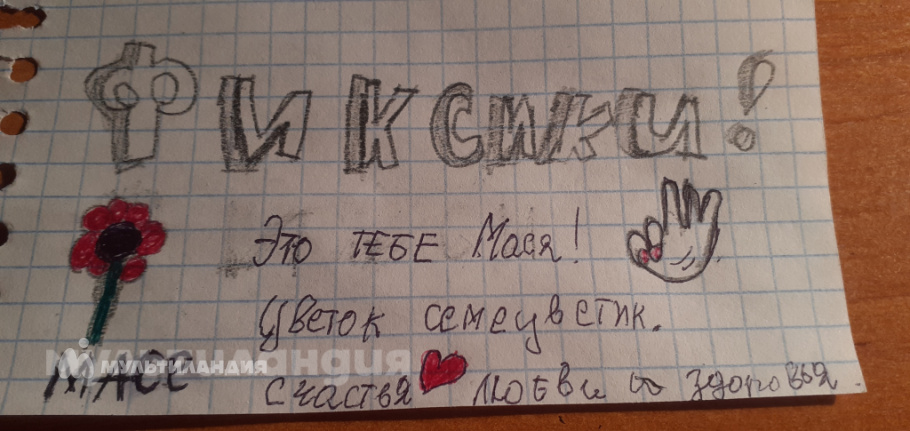 Фиксики!
Это ТЕБЕ Мася!
Цветок семецветик.
Счастья Любви и здоровья.
МАСС
МУЛЬТИЛАНДИЯ